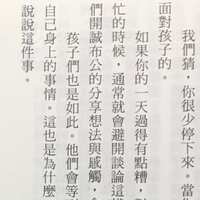 我們猜，你很少停下來。當你
面對孩子的。
如果你的一天過得有點糟，
忙的時候，通常就會避開談論這
們開誠布公的分享想法與感觸，
孩子們也是如此。他們會等
自己身上的事情。這也是為什麼
說說這件事。